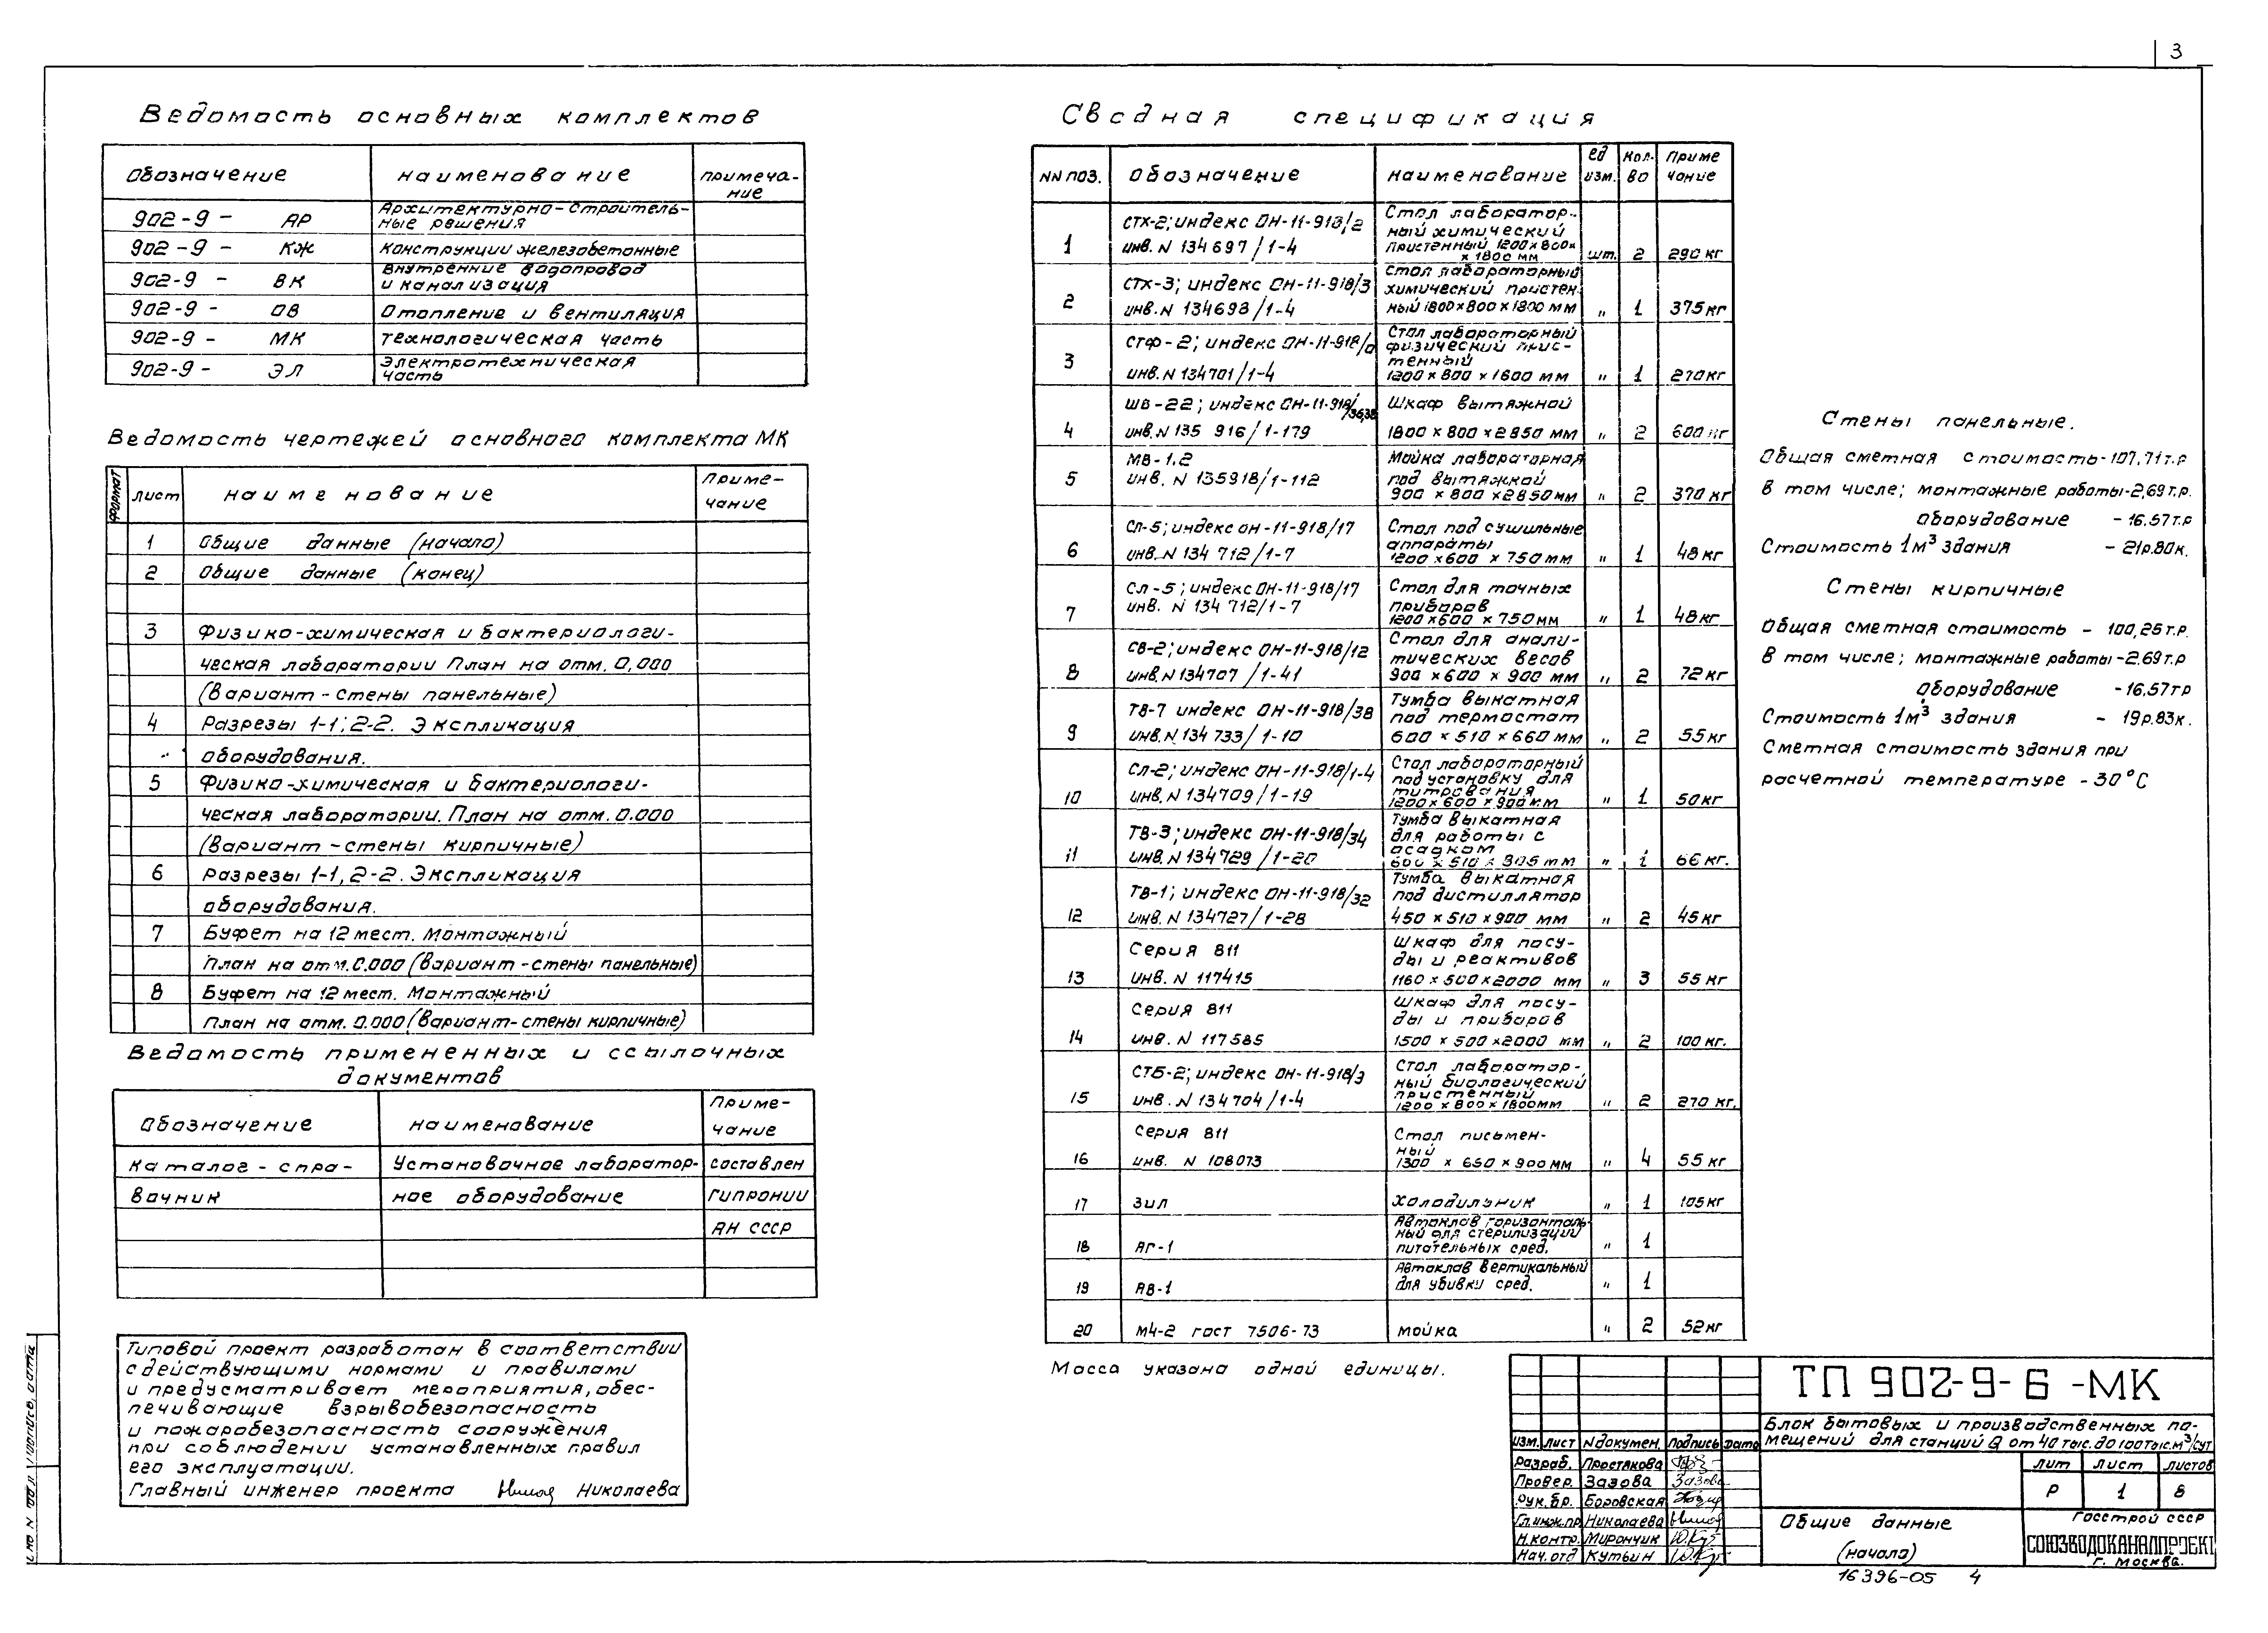 3
Ведомость основных комплектов
Обозначение
наименование
примеча-
ние
902-9- АР
Архитектурно-строитель-
ные решения
902-9- КЖ
Конструкции железобетонные
902-9- ВК
Внутренние водопровод
и канализация
902-9- ОВ
Отопление и вентиляция
902-9- МК
технологическая часть
902-9- ЭЛ
Электротехническая
часть
Ведомость чертежей основного комплекта МК
формат
лист
наименование
Приме-
чание
1 Общие данные (начало)
2 Общие данные (конец)
3 Физико-химическая и бактериологи-
ческая лаборатории План на отм. 0,000
(Вариант-стены панельные)
4 Разрезы 1-1; 2-2. Экспликация
оборудования.
5 Физико-химическая и бактериологи-
ческая лаборатории. План на отм. 0.000
(Вариант-стены кирпичные)
6 Разрезы 1-1, 2-2. Экспликация
оборудования.
7 Буфет на 12 мест. Монтажный
план на отм. 0.000 (Вариант-стены панельные)
8 Буфет на 12 мест. Монтажный
план на отм. 0.000 (Вариант-стены кирпичные)
Ведомость примененных и ссылочных
документов
Обозначение
наименование
Приме-
чание
Каталог-спра- Установочное лаборатор- составлен
вочник ное оборудование гипронии
АН СССР
Типовой проект разработан в соответствии
с действующими нормами и правилами
и предусматривает мероприятия, обес-
печивающие взрывобезопасность
и пожаробезопасность сооружения
при соблюдении установленных правил
его эксплуатации.
Главный инженер проекта Николаева
Сводная спецификация
NN поз.
Обозначение
наименование
ед
изм.
Кол-
во
Приме
чание
1
СТХ-2; индекс ОН-11-918/2
инв. N 134697/1-4
Стол лаборатор-
ный химический
пристенный 1200х800х
х 1800 мм
шт. 2 290 кг
2
СТХ-3; индекс ОН-11-918/3
инв. N 134698/1-4
Стол лабораторный
химический пристен-
ный 1800х800х1800 мм
„ 1 375 кг
3
СТФ-2; индекс ОН-11-918/
инв. N 134701/1-4
Стол лабораторный
физический прис-
тенный
1200х800х1600 мм
„ 1 270 кг
4
ШВ-22; индекс ОН-11-918/36,38
инв. N 135 916/1-179
Шкаф вытяжной
1800х800х2850 мм
„ 2 600 кг
5
МВ-1.2
инв. N 135918/1-112
Мойка лабораторная
под вытяжкой
900х800х2850 мм
„ 2 370 кг
6
СЛ-5; индекс ОН-11-918/17
инв. N 134 712/1-7
Стол под сушильные
аппараты
1200х600 х 750 мм
„ 1 48 кг
7
СЛ-5; индекс ОН-11-918/17
инв. N 134 712/1-7
Стол для точных
приборов
1200х600 х 750 мм
„ 1 48 кг
8
СВ-2; индекс ОН-11-918/12
инв. N 134707/1-41
Стол для анали-
тических весов
900 х 600 х 900 мм
„ 2 72 кг
9
ТВ-7 индекс ОН-11-918/38
инв. N 134 733/1-10
Тумба выкатная
под термостат
600 х 510 х 660 мм
„ 2 55 кг
10
СЛ-2; индекс ОН-11-918/1-4
инв. N 134709/1-19
Стол лабораторный
под установку для
титрования
1200х600х900 мм
„ 1 50 кг
11
ТВ-3; индекс ОН-11-918/34
инв. N 134729/1-20
Тумба выкатная
для работы с
осадком
600 х 510 х 805 мм
„ 1 66 кг.
12
ТВ-1; индекс ОН-11-918/32
инв. N 134727/1-28
Тумба выкатная
под дистиллятор
450 х 510 х 900 мм
„ 2 45 кг
13
Серия 811
инв. N 117415
Шкаф для посу-
ды и реактивов
1160 х 500х2000 мм
„ 3 55 кг
14
Серия 811
инв. N 117585
Шкаф для посу-
ды и приборов
1500 х 500 х2000 мм
„ 2 100 кг.
15
СТБ-2; индекс ОН-11-918/3
инв. N 134704/1-4
Стол лаборатор-
ный биологический
пристенный
1200 х 800х1800мм
„ 2 270 кг.
16
Серия 811
инв. N 108073
Стол письмен-
ный
1300 х 650 х 900 мм
„ 4 55 кг
17 ЗИЛ холодильник „ 1 105 кг
18 АГ-1
Автоклав горизонталь-
ный для стерилизации
питательных сред.
„ 1
19 АВ-1
Автоклав вертикальный
для убивки сред.
„ 1
20 М4-2 гост 7506-73 мойка „ 2 52 кг
Масса указана одной единицы.
Стены панельные.
Общая сметная стоимость-107,71 т.р
В том числе; монтажные работы-2,69 т.р.
Оборудование - 16.57 т.р
Стоимость 1 м³ здания - 21р.80к.
Стены кирпичные
Общая сметная стоимость - 100,25 т.р.
В том числе; монтажные работы-2.69 т.р
Оборудование -16.57 тр
Стоимость 1м³ здания - 19р.83к.
Сметная стоимость здания при
расчетной температуре -30°С
ТП 902-9-6-МК
Блок бытовых и производственных по-
мещений для станций Q от 40 тыс. до 100 тыс. м³/сут
изм. лист N докумен. подпись дата
Разраб. Простякова
Провер. Зазова
Рук. бр. Боровская
Гл. инж. пр Николаева
Н.контр. Мирончик
Нач. отд Кутьин
лит лист листов
Р 1 8
Общие данные
(начало)
Госстрой СССР
СОЮЗВОДОКАНАЛПРОЕКТ
г. Москва.
16396-05 4